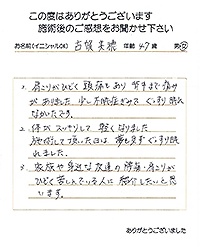 この度はありがとうございます
施術後のご感想をお聞かせ下さい
お名前(イニシャルOK) 古賀 美穂 年齢 47才 男・女
1. 肩こりがひどく頭痛もあり 背中まで痛み
がありました 少し不眠症ぎみで ぐっすり眠れ
なかたです。
2. 体がスッキリして 軽くなりました
施術して頂いた日は 夢も見ずぐっすり眠
れました。
3. 家族や身近な友達の 腰痛・肩こりが
ひどく苦しんでいる人に 紹介したいと思
います。
ありがとうございました